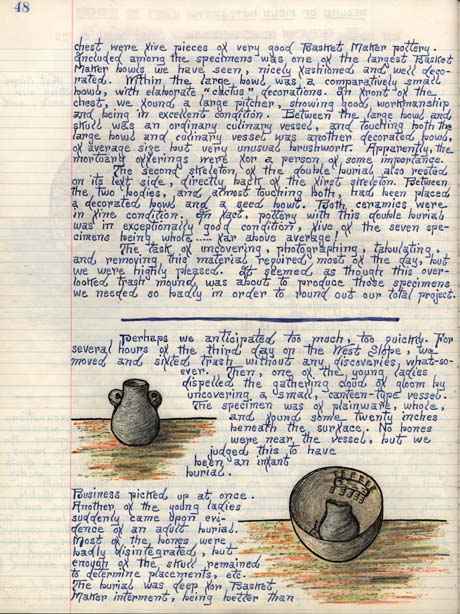 48
chest were five pieces of very good Basket Maker pottery.
Included among the specimens was one of the largest Basket
Maker bowls we have seen, nicely fashioned and well deco-
rated. Within the large bowl was a comparatively small
bowl, with elaborate "cactus" decorations. In front of the
chest, we found a large pitcher, showing good workmanship
and being in excellent condition. Between the large bowl and
skull was an ordinary culinary vessel, and touching both the
large bowl and culinary vessel was another decorated bowl,
of average size but very unusual brushwork. Apparently, the
mortuary offerings were for a person of some importance.
The second skeleton of the double burial also rested
on its left side, directly back of the first skeleton. Between
the two bodies, and almost touching both, had been placed
a decorated bowl and a seed bowl. Both ceramics were
in fine condition. In fact, pottery with this double burial
was in exceptionally good condition, five of the seven spe-
cimens being whole..... far above average!
The task of uncovering, photographing, tabulating,
and removing this material required most of the day, but
we were highly pleased. It seemed as though this over-
looked trash mound was about to produce those specimens
we needed so badly in order to round out our total project.
Perhaps we anticipated too much, too quickly. For
several hours of the third day on the West Slope, we
moved and sifted trash without any discoveries, what-so-
ever. Then, one of the young ladies
dispelled the gathering cloud of gloom by
uncovering a small, canteen-type vessel.
The specimen was of plainware, whole,
and found some twenty inches
beneath the surface. No bones
were near the vessel, but we
judged this to have
been an infant
burial.
Business picked up at once.
Another of the young ladies
suddenly came upon evi-
dence of an adult burial.
Most of the bones were
badly disintegrated, but
enough of the skull remained
to determine placements, etc.
The burial was deep for Basket
Maker interment, being better than